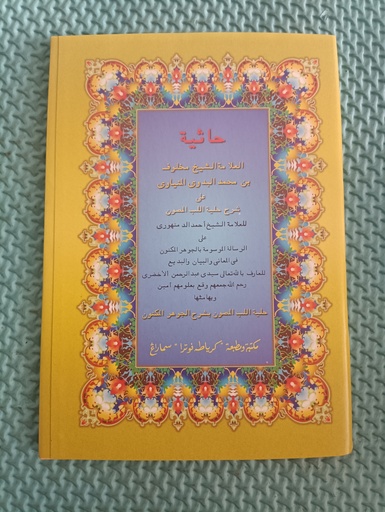 حاشية
العلامة الشيخ مخلوف
بن محمد البدوى المنياوى
على
شرح حلية اللب المصون
للعلامة الشيخ أحمد الدمنهورى
على
الرسالة الموسومة بالجوهر المكنون
فى المعانى والبيان والبديع
للعارف بالله تعالى سيدى عبد الرحمن الأخضرى
رحم الله جمعهم ونفع بعلومهم آمين
وبهامشها
حلية اللب المصون بشرح الجوهر المكنون
مكتبة ومطبعة "كرياطه فوترا" سماراغ